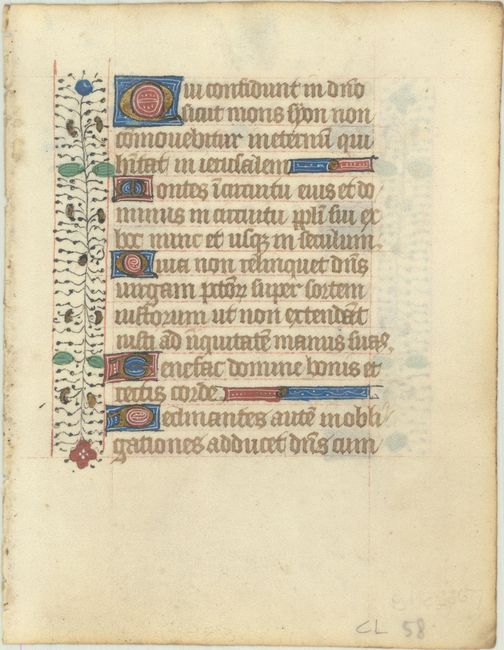 Qui confidunt in dño
sicut mons syon non
comovebitur in eternũ qui
hitat in ierusalem
Montes ĩ circuitu eius et do
minus in circuitu ppli sui ex
hoc nunc et usqz in seculum.
Quia non relinquet dñs
virgam pctõr super sortem
iustorum ut non extendãt
iusti ad iniquitatẽ manus suas.
Benefac domine bonis et
rectis corde
Declinantes autẽ in obli
gationes adducet dñs cum
CL 58